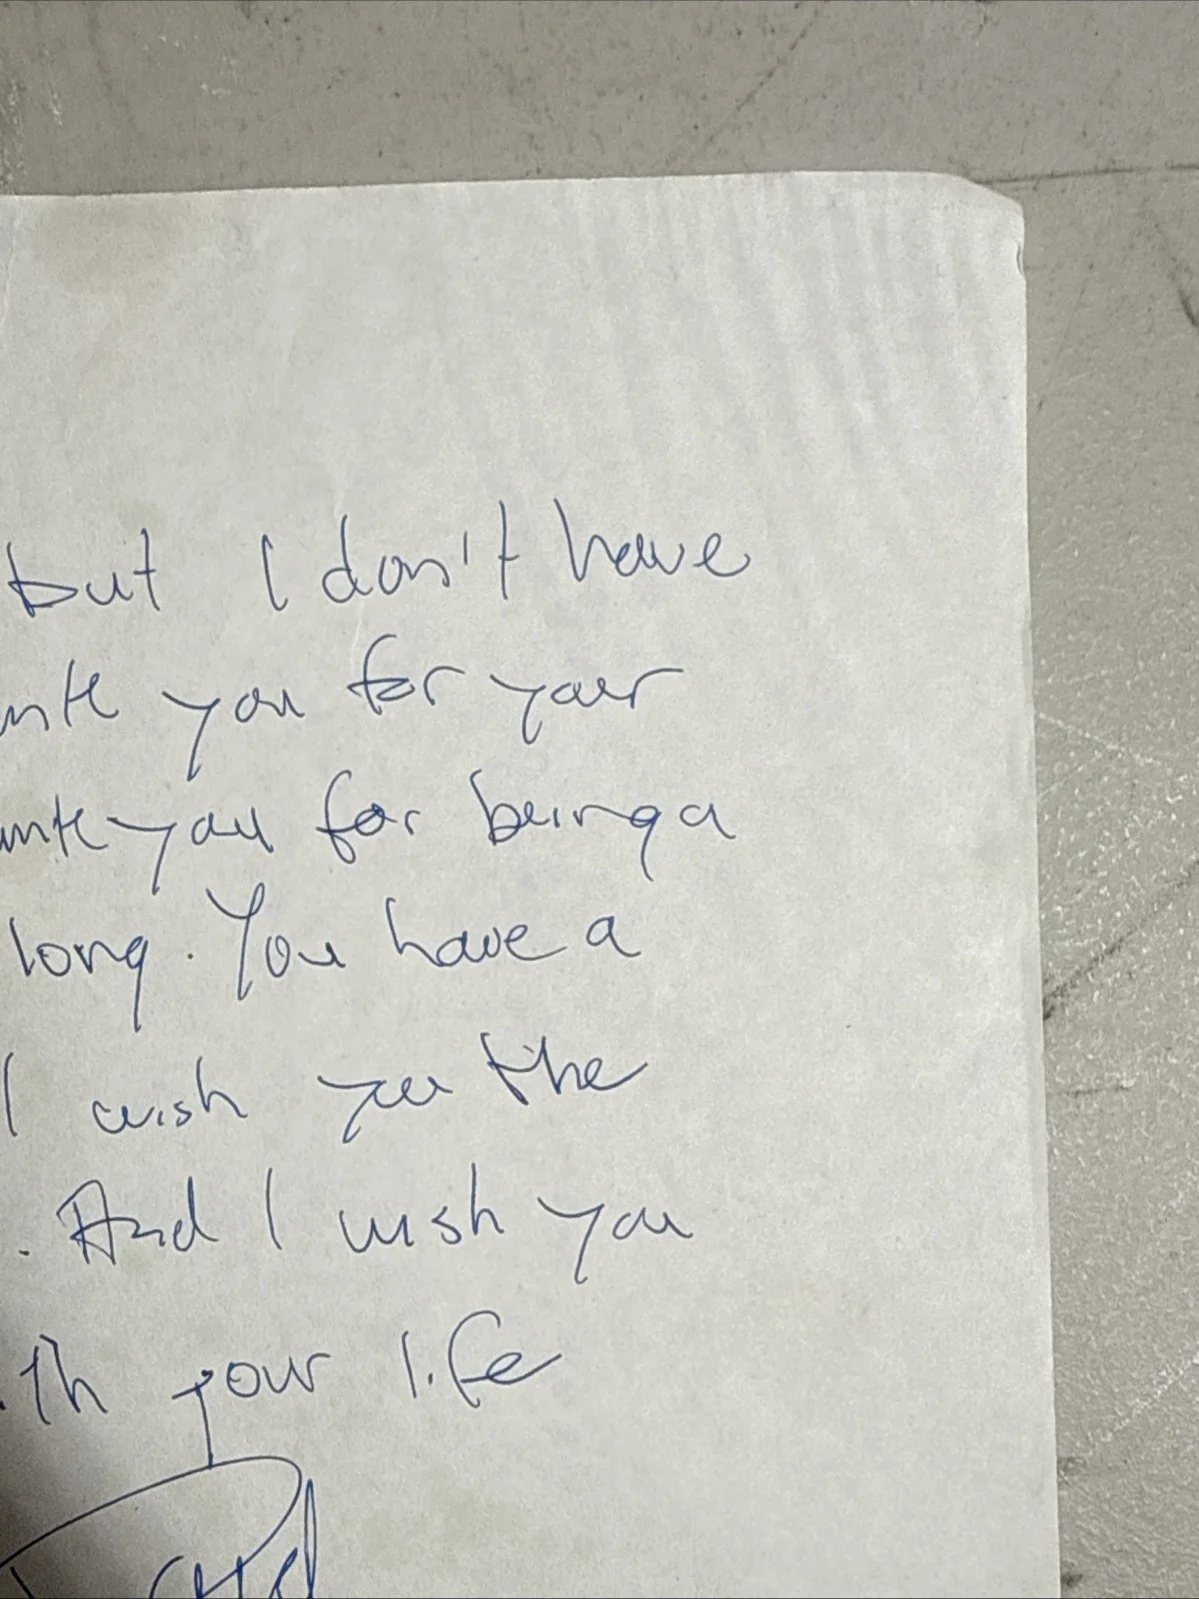 but I don't have
you for your
you for being a
long. You have a
I wish you the
. And I wish you
your life